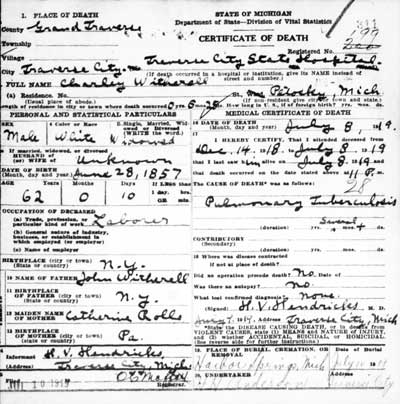 1. PLACE OF DEATH
STATE OF MICHIGAN
Department of State—Division of Vital Statistics
County Grand Traverse
Township
CERTIFICATE OF DEATH
Village
Registered No.
City Traverse City Traverse City State Hospital
(If death occurred in a hospital or institution, give its NAME instead of street and number.)
FULL NAME Charley Witherall
(a) Residence. No. St. Petosky, Mich
(Usual place of abode.)
(If non-resident give city or town and state.)
PERSONAL AND STATISTICAL PARTICULARS
Male White
5 Single, Married, Widowed or Divorced (WRITE the word.)
If married, widowed, or divorced
HUSBAND of
(or) WIFE of Unknown
DATE OF BIRTH
(Month, day and year) June 28, 1857
AGE Years Months Days If LESS than 1 day,
62 0 10
OCCUPATION OF DECEASED
(a) Trade, profession, or particular kind of work Laborer
(b) General nature of industry, business, or establishment in which employed (or employer)
(c) Name of employer
BIRTHPLACE (city or town)
(State or country) N.Y.
10 NAME OF FATHER John Witherall
11 BIRTHPLACE OF FATHER (city or town)
(State or country) N.Y.
12 MAIDEN NAME OF MOTHER Catherine Rolls
13 BIRTHPLACE OF MOTHER (city or town)
(State or country) Pa.
Informant H. V. Hendricks
(Address) Traverse City Mich.
Registrar.
MEDICAL CERTIFICATE OF DEATH
16 DATE OF DEATH
(Month, day and year) July 8, 19
I HEREBY CERTIFY, That I attended deceased from
Dec. 14, 1918, to July 8, 1919
that I last saw him alive on July 8, 1919 and
that death occurred on the date stated above at 11 P. m.
The CAUSE OF DEATH* was as follows:
28
Pulmonary Tuberculosis
Several
(duration) yrs. mos. ds.
CONTRIBUTORY
(Secondary)
(duration) yrs. mos. ds.
18 Where was disease contracted
if not at place of death?
Did an operation precede death? No. Date of
Was there an autopsy? No.
What test confirmed diagnosis? None.
(Signed) H. V. Hendricks, M. D.
(Address) Traverse City, Mich
*State the DISEASE CAUSING DEATH, or in deaths from VIOLENT CAUSES, state (1) MEANS and NATURE of INJURY, and (2) whether ACCIDENTAL, SUICIDAL, or HOMICIDAL. (See reverse side for further instructions.)
19. PLACE OF BURIAL, CREMATION, OR REMOVAL
Date of Burial
Harbor Springs, Mich
20. UNDERTAKER